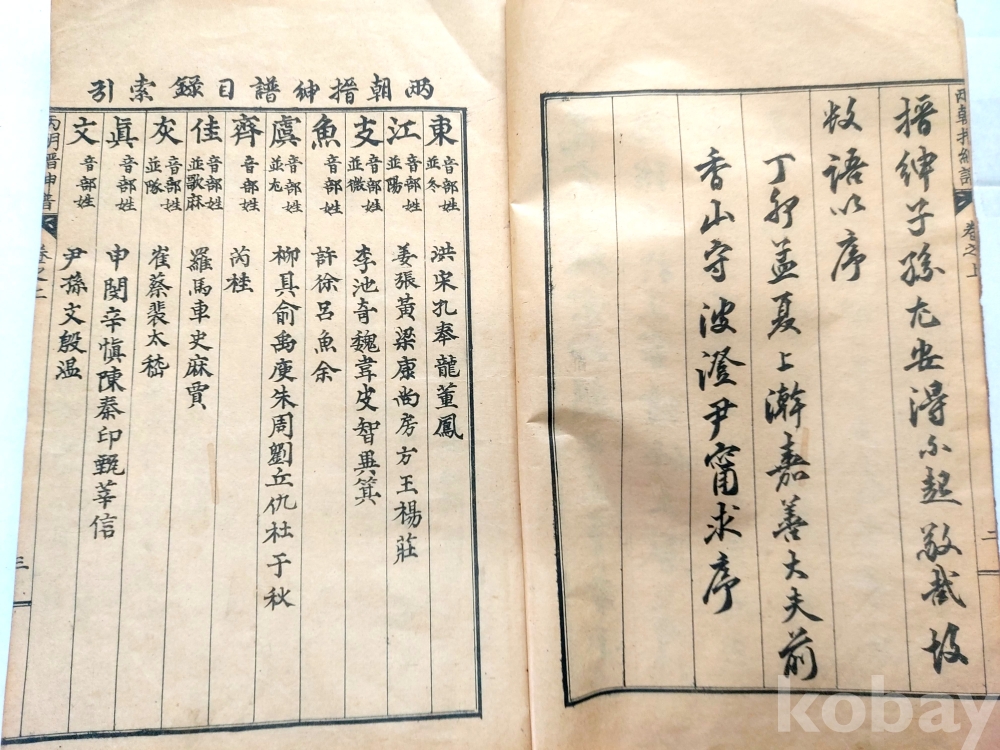 兩朝搢紳譜
卷之上
二
搢紳子孫尤安得不起敬哉故
敍語以序
丁卯孟夏上澣嘉善大夫前
香山守波澄尹甯求序
兩朝搢紳譜目錄索引
東 音部姓 並冬 洪宋孔奉龍董鳳
江 音部姓 並陽 姜張黃梁康尚房方王楊莊
支 音部姓 並微 李池奇魏韋皮智異箕
魚 音部姓 許徐呂魚余
虞 音部姓 並尤 柳具俞禹庾朱周劉丘仇杜于秋
齊 音部姓 芮桂
佳 音部姓 並歌麻 羅馬車史麻賈
灰 音部姓 並隊 崔蔡裴太嵇
眞 音部姓 申閔辛愼陳秦印甄莘信
文 音部姓 尹孫文殷温
兩朝搢紳譜
三
kobay